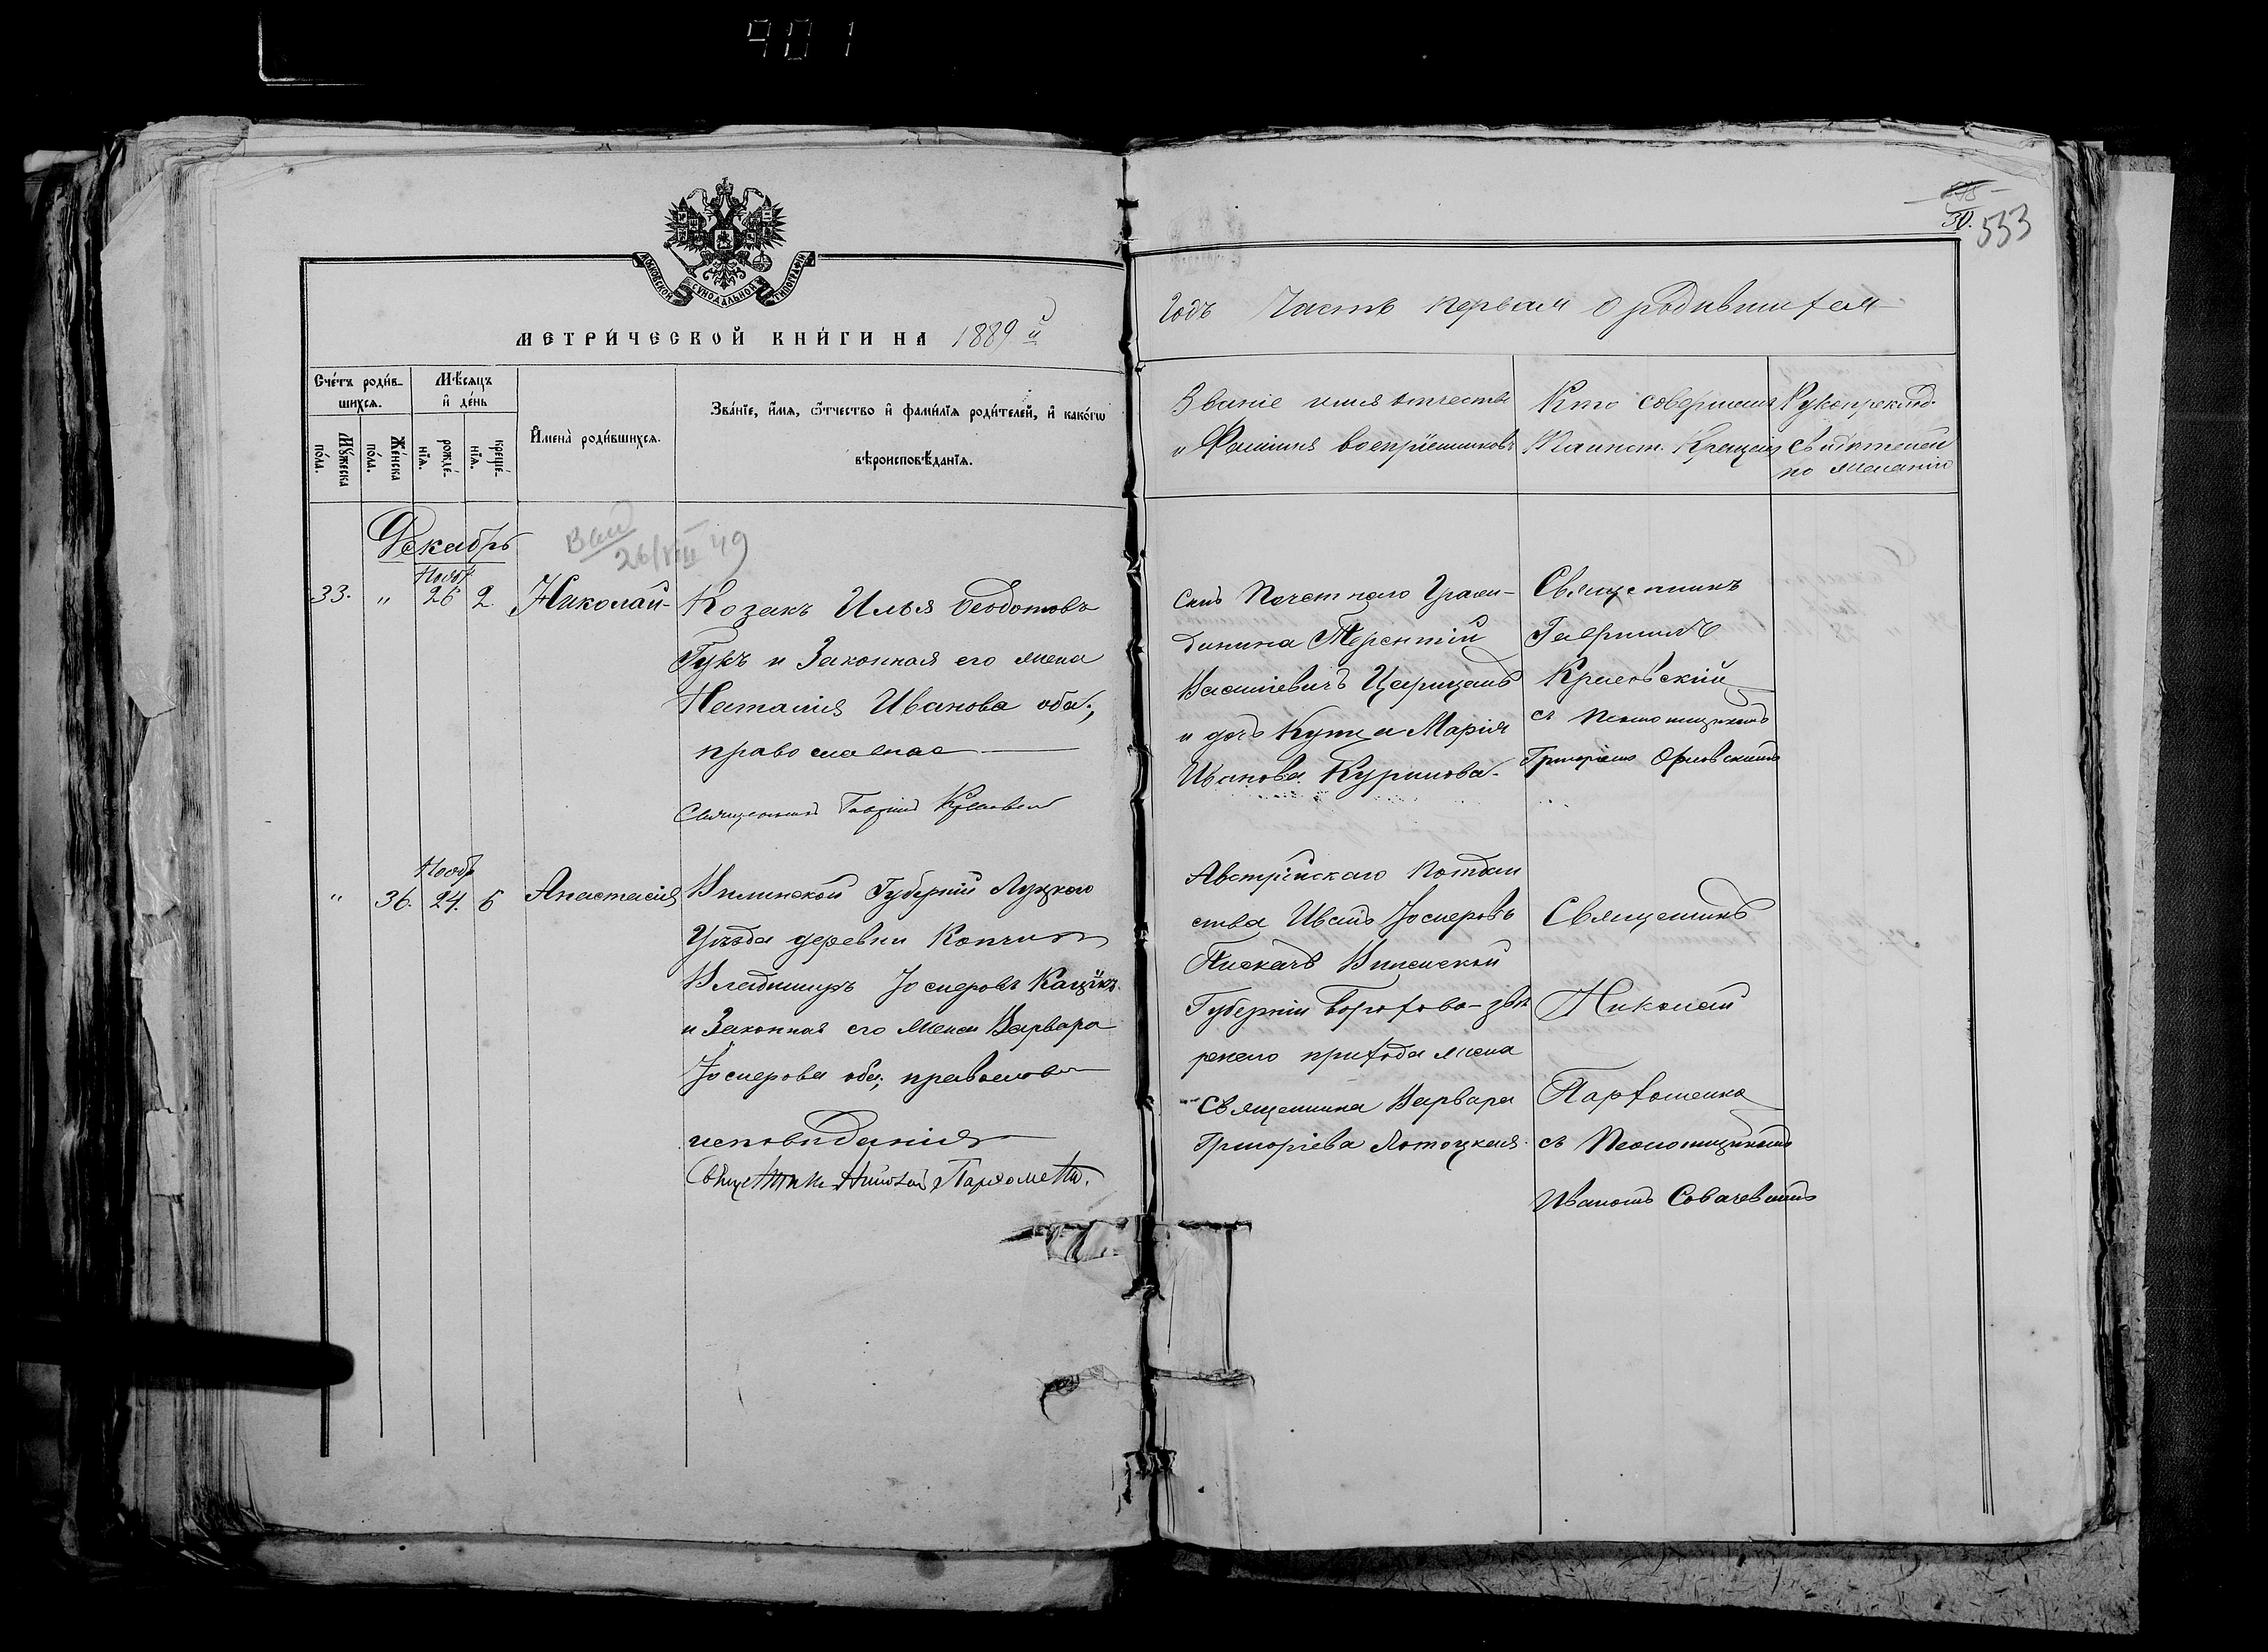 901
30. 533
МОСКОВСКОЙ СѴНОДАЛЬНОЙ ТИПОГРАФІИ
МЕТРИ́ЧЕСКОЙ КНИ́ГИ НА 1889 й
Годъ Часть первая о родившихся
Сче́тъ роди́в-
шихся.
Мѣ́сяцъ
и де́нь
Му́жеска
по́ла.
Же́нска
по́ла.
рожде́-
нїя.
креще́-
нїя.
И҆мена̀ роди́вшихся.
Зва́нїе, и҆́мя, ѻ҆́тчество и҆ фами́лїя роди́телей, и҆ како́гѡ
вѣроисповѣ́данїя.
Званіе имя отчество
и Фамилия воспріемниковъ
Кто совершалъ
Таинст. Крещенія
Рукоприклад.
свидѣтелей
по желанію
Декабрь
26/VIII 49
Нояб
33. " 26 2 Николай
Козакъ Илья Ѳеодотовъ
Гукъ и Законная его жена
Наталія Иванова оба,
православные
Священникъ Гавріилъ Красовскій
Сынъ Почетнаго Граж-
данина Терентій
Василіевичъ Царицанъ
и дочь Купца Марія
Иванова Курилова.
Священникъ
Гавриилъ
Красовский
съ Псаломщикомъ
Григоріемъ Орловскимъ
Нояб
" 36. 24. 6 Анастасія
Виленской Губерніи Луцкаго
Уѣзда деревни
Владимиръ Іосифовъ
и Законная его Жена Варвара
Іосифова оба, православна
исповѣданія
Священникъ Николай Пархоменко.
Австрійскаго Поддан
ства Иванъ Іосифовъ
Пискачъ Виленской
Губерніи
прихода жена
Священника Варвара
Григоріева Лотоцкая.
Священникъ
Николай
Пархоменко
съ Псаломщикомъ
Иваномъ